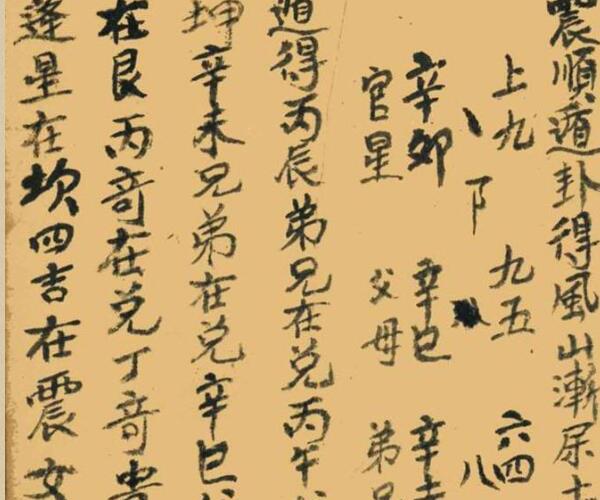 震順遁卦得風山漸尿
上九 九五 六四
丶 下 八
辛卯 辛巳 辛
官星 父母 弟兄
遁得丙辰弟兄在兑丙午
坤辛未兄弟在兑辛巳
在艮丙奇在兑丁奇
逢星在坎四吉在震女